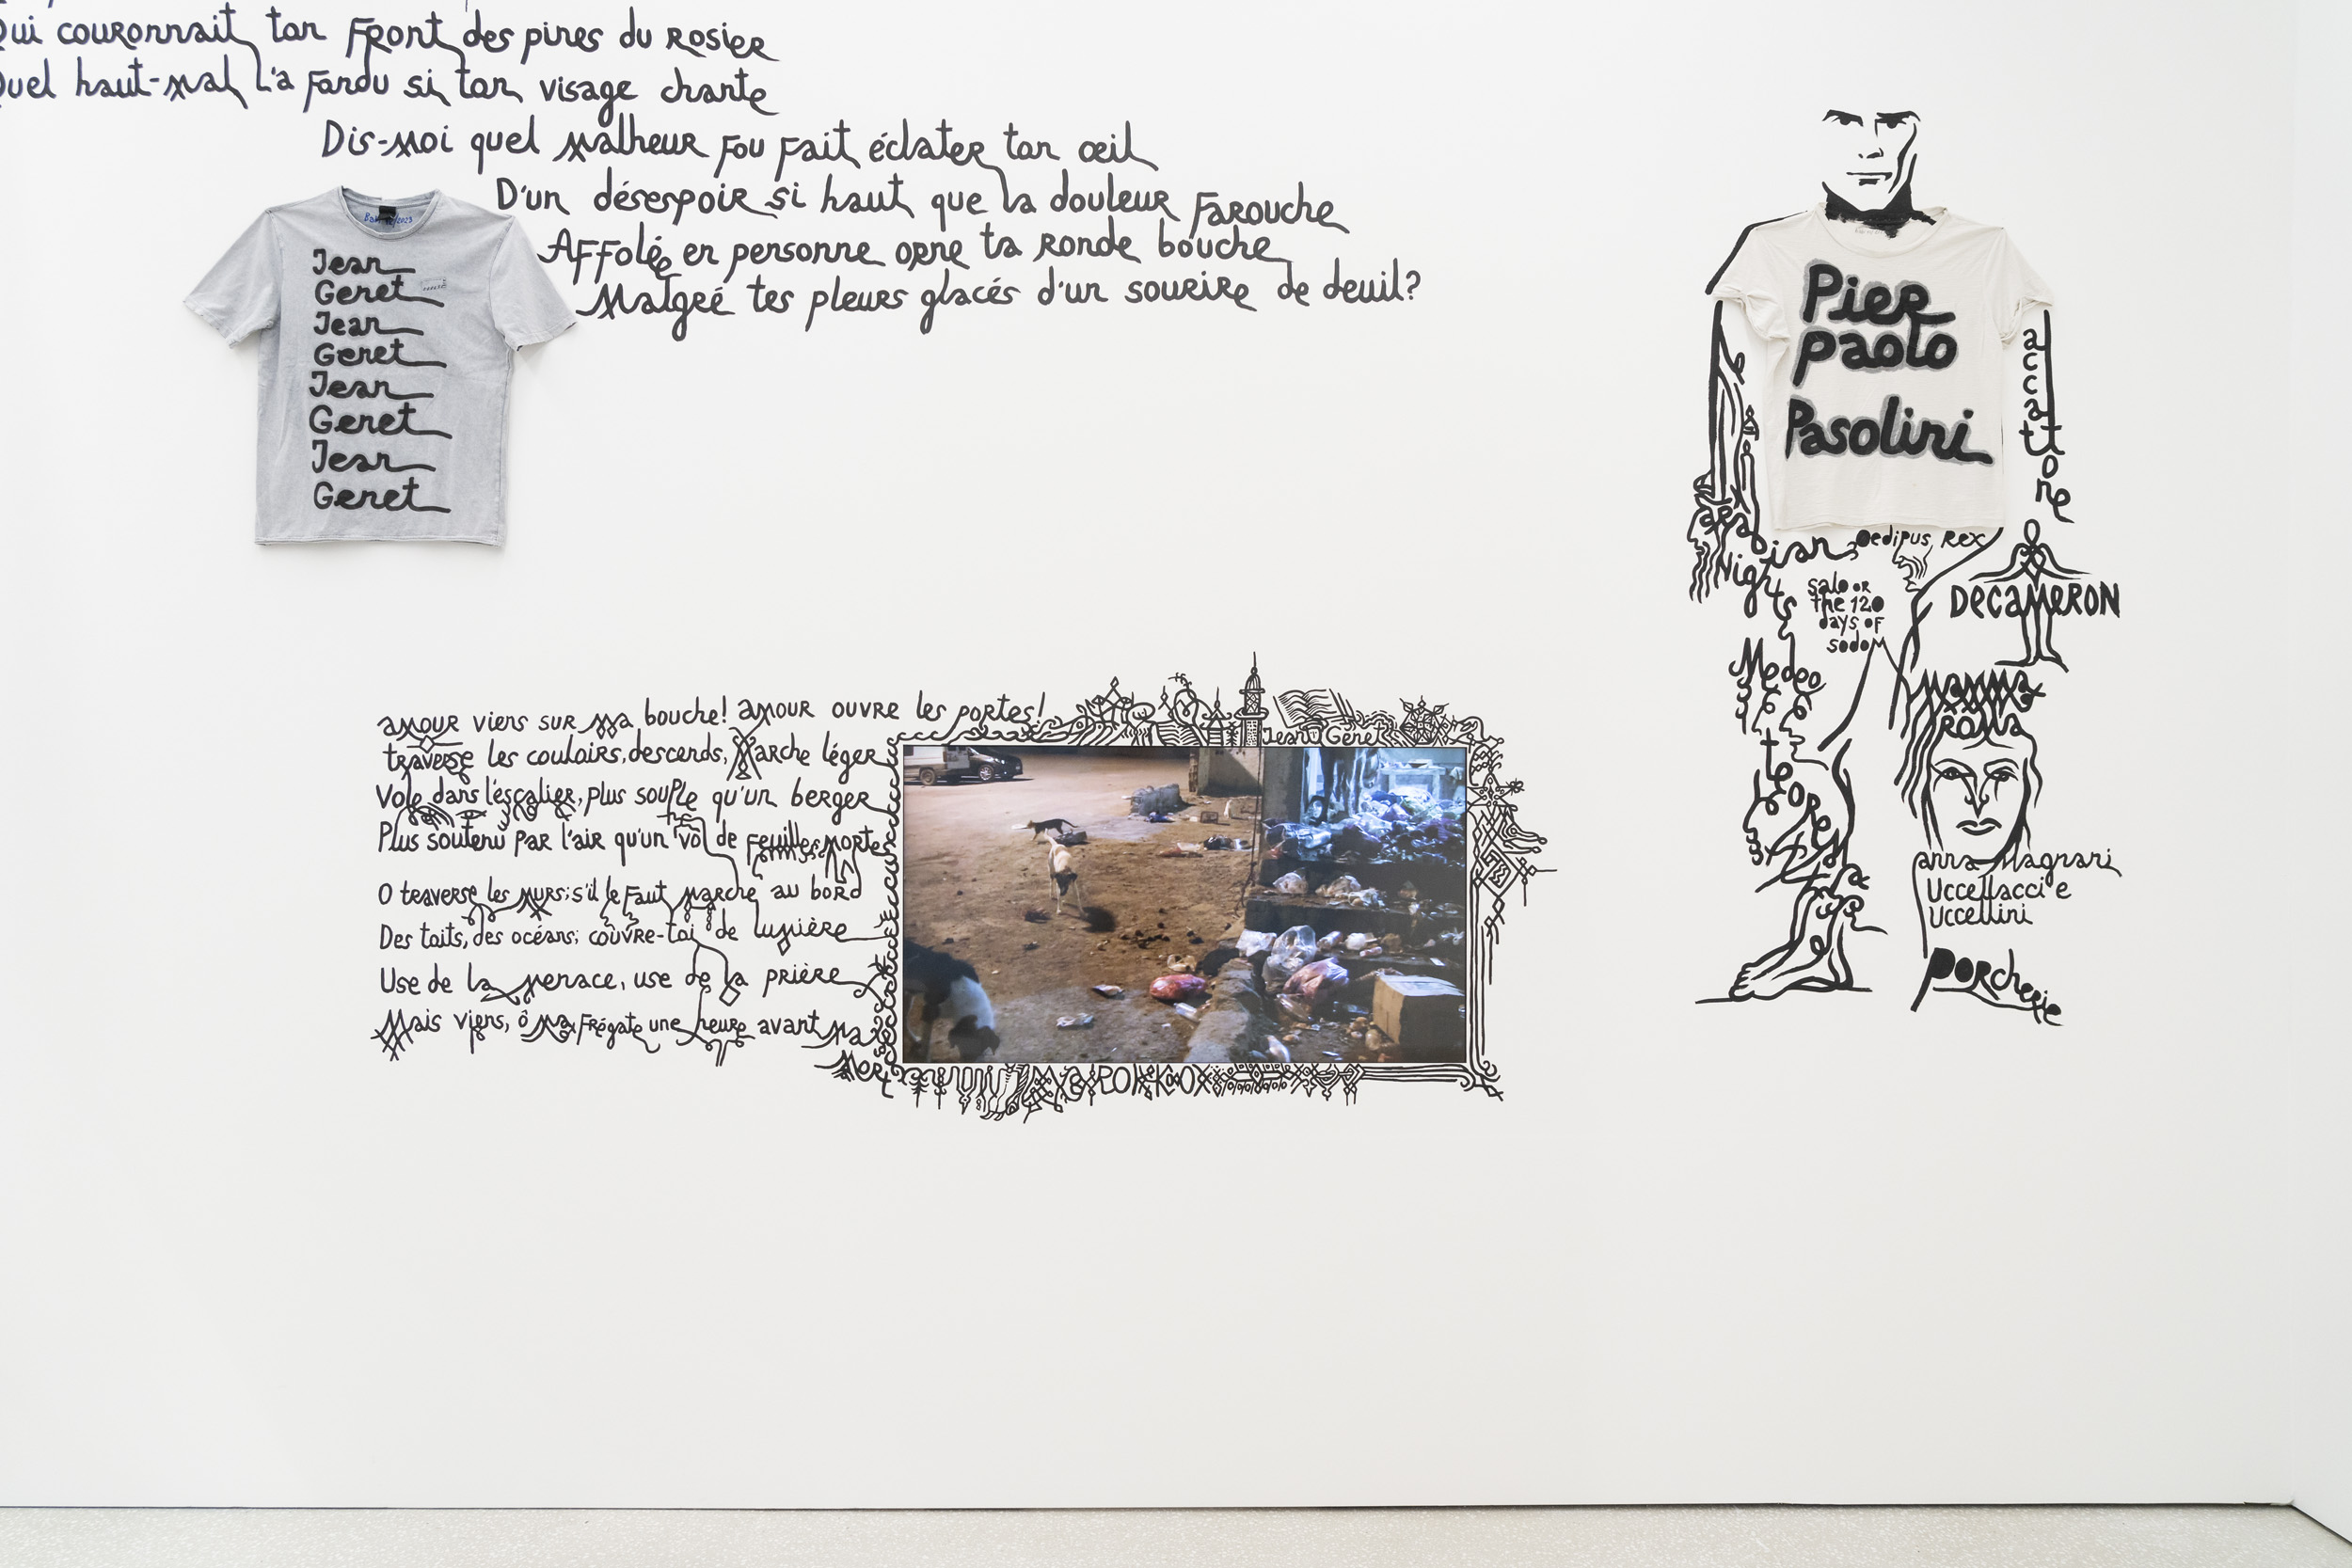 Qui couronnait ton Front des pines du Rosier
Quel haut-mal l'a Fondu si ton visage chante
Dis-Moi quel Malheur Fou Fait éclater ton œil
D'un désespoir si haut que la douleur Farouche
Affolée en personne orne ta Ronde bouche
Malgré tes pleurs glacés d'un sourire de deuil?
Jean
Genet
Jean
Genet
Jean
Genet
Jean
Genet
amour viens sur Ma bouche! amour ouvre les portes!
traverse les couloirs, descends, Marche léger
Vole dans l'escalier, plus souple qu'un berger
Plus soutenu par l'air qu'un vol de Feuilles Mortes
O traverse les Murs; s'il le Faut Marche au bord
Des toits, des océans; couvre-toi de lumière
Use de la Menace, use de la prière
Mais viens, ô Ma Frégate une heure avant Ma
Mort
Jean Genet
MaROKKO
Pier
Paolo
Pasolini
accattone
arabian
Nights
Oedipus Rex
Salo or
the 120
days of
sodoM
DecaMeRON
Medea
MaMMa
RoMa
teoreMa
anna Magnani
Uccellacci e
Uccellini
porcherie